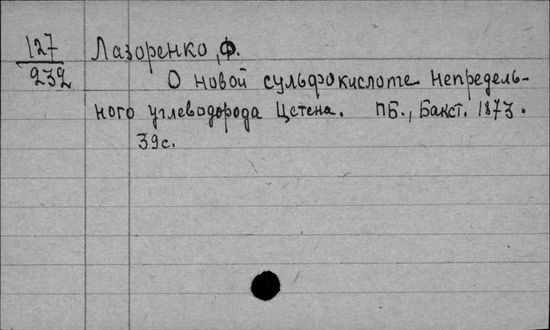 127
232
Лазоренко, Ф.
О новой сульфокислоте непредель-
ного углеводорода Цетена. ПБ., Бакст. 1873.
39с.